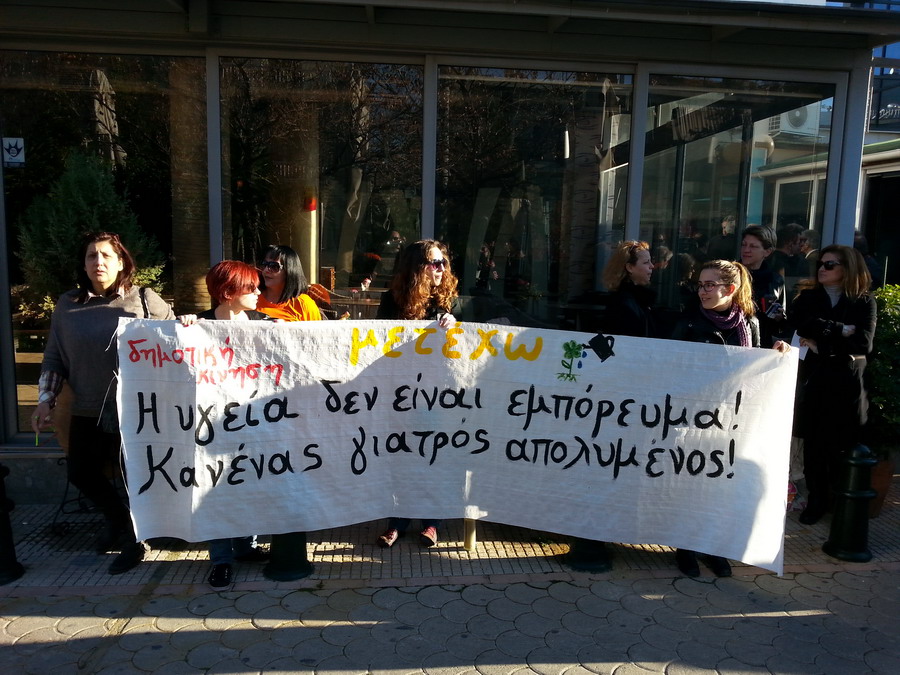 δημοτική
κίνηση
μετέχω
Η υγεία δεν είναι εμπόρευμα!
Κανένας γιατρός απολυμένος!